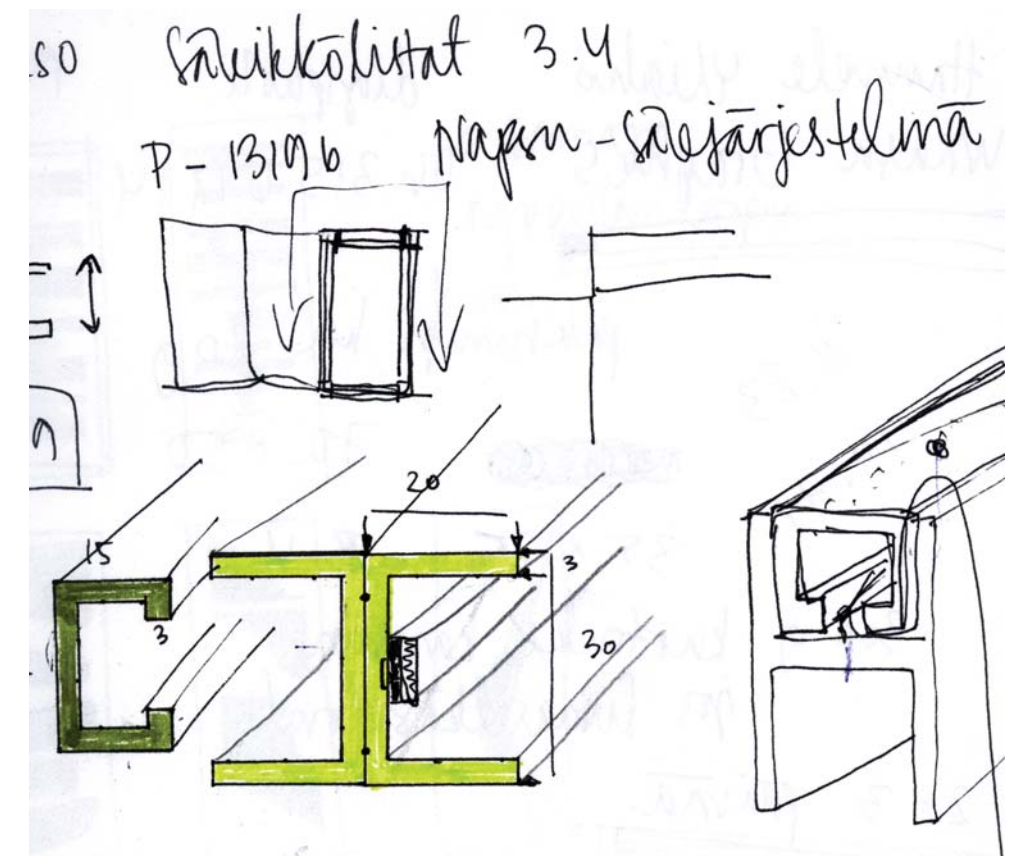 so Säleikkölistat 3.4
P-13196 Napsu-sälejärjestelmä
20
15
3
3
30